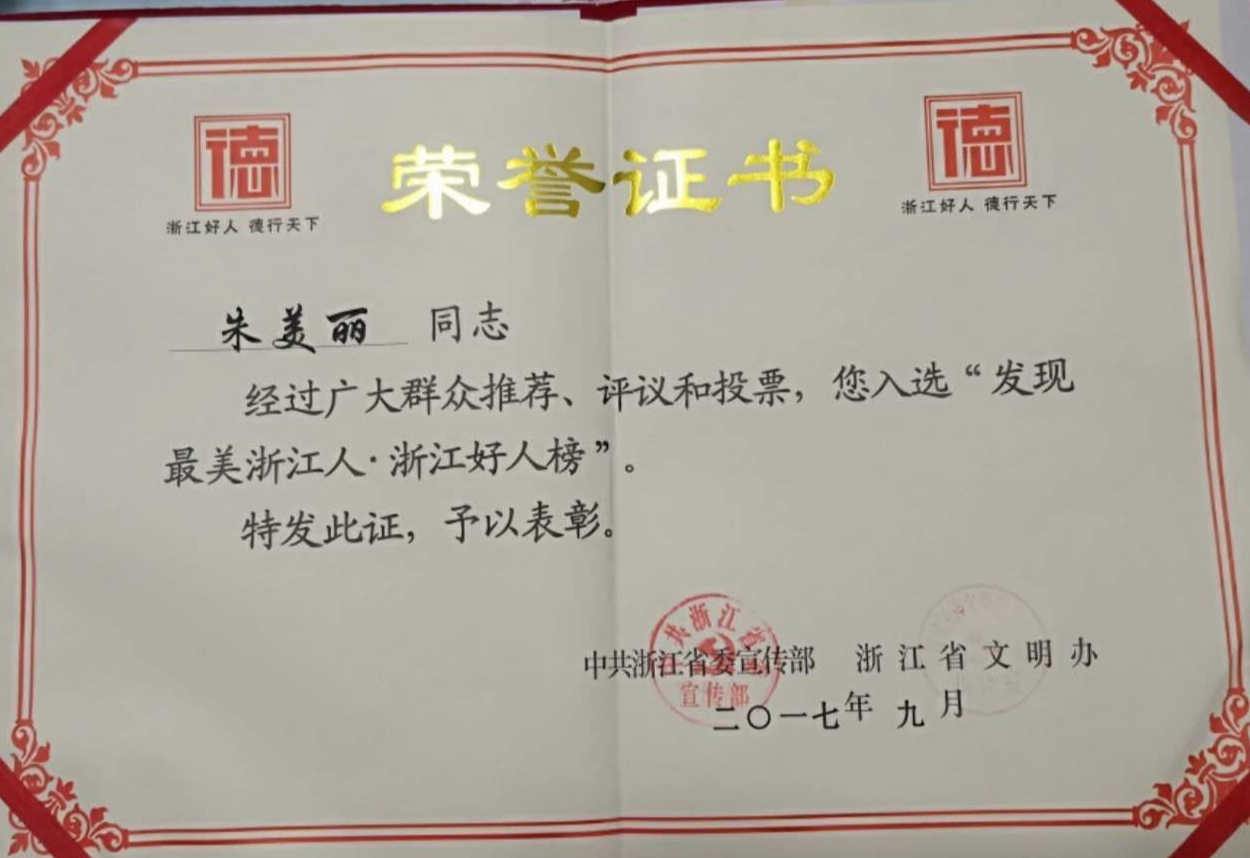 德
德
荣誉证书
浙江好人 德行天下
浙江好人 德行天下
朱美丽 同志
经过广大群众推荐、评议和投票，您入选“发现
最美浙江人·浙江好人榜”。
特发此证，予以表彰。
中共浙江省委宣传部 浙江省文明办
二〇一七年 九月
共浙江省
宣传部